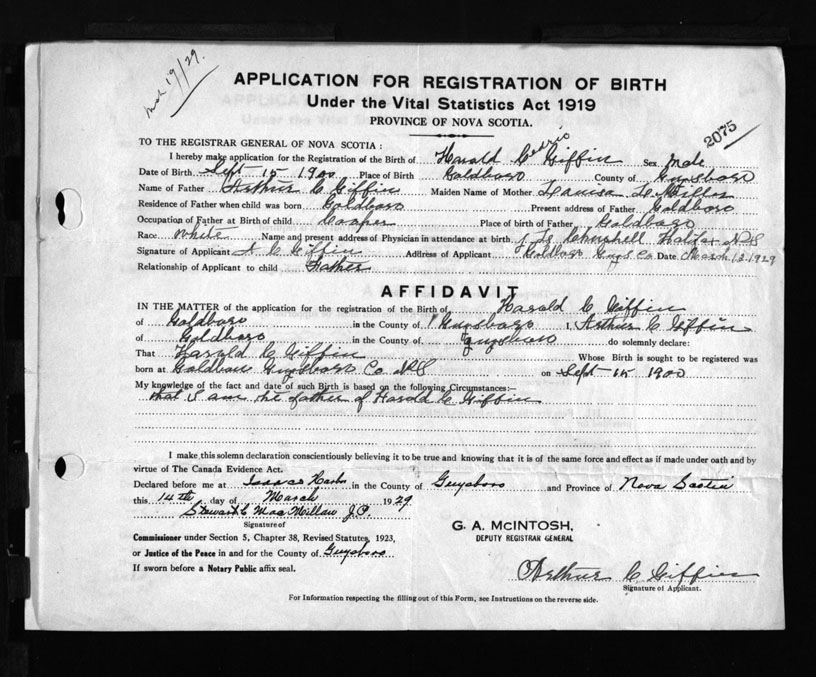 Mch 19/29.
APPLICATION FOR REGISTRATION OF BIRTH
Under the Vital Statistics Act 1919
PROVINCE OF NOVA SCOTIA.
2075
TO THE REGISTRAR GENERAL OF NOVA SCOTIA:
I hereby make application for the Registration of the Birth of Harald Cedric Giffin Sex Male
Date of Birth Sept 15 1900 Place of Birth Goldboro County of Guysboro
Name of Father Arthur C Giffin Maiden Name of Mother Louisa
Residence of Father when child was born Goldboro Present address of Father Goldboro
Occupation of Father at Birth of child Cooper Place of birth of Father Goldboro
Race White Name and present address of Physician in attendance at birth Halifax N S
Signature of Applicant A C Giffin Address of Applicant Goldboro Guys Co Date March 13 1929
Relationship of Applicant to child Father
AFFIDAVIT
IN THE MATTER of the application for the registration of the Birth of Harold C Giffin
of Goldboro in the County of Guysboro I, Arthur C Giffin
of Goldboro in the County of Guysboro do solemnly declare:
That Harald C Giffin Whose Birth is sought to be registered was
born at Goldboro Guysboro Co N S on Sept 15 1900
My knowledge of the fact and date of such Birth is based on the following Circumstances:—
that I am the father of Harold C Giffin
I make this solemn declaration conscientiously believing it to be true and knowing that it is of the same force and effect as if made under oath and by
virtue of The Canada Evidence Act.
Declared before me at Isaacs Harbr in the County of Guysboro and Province of Nova Scotia
this 14th day of March 1929
Stewart C MacMillan J.P.
Signature of
G. A. McINTOSH,
DEPUTY REGISTRAR GENERAL
Commissioner under Section 5, Chapter 38, Revised Statutes, 1923,
or Justice of the Peace in and for the County of Guysboro
If sworn before a Notary Public affix seal.
Arthur C Giffin
Signature of Applicant.
For Information respecting the filling out of this Form, see Instructions on the reverse side.